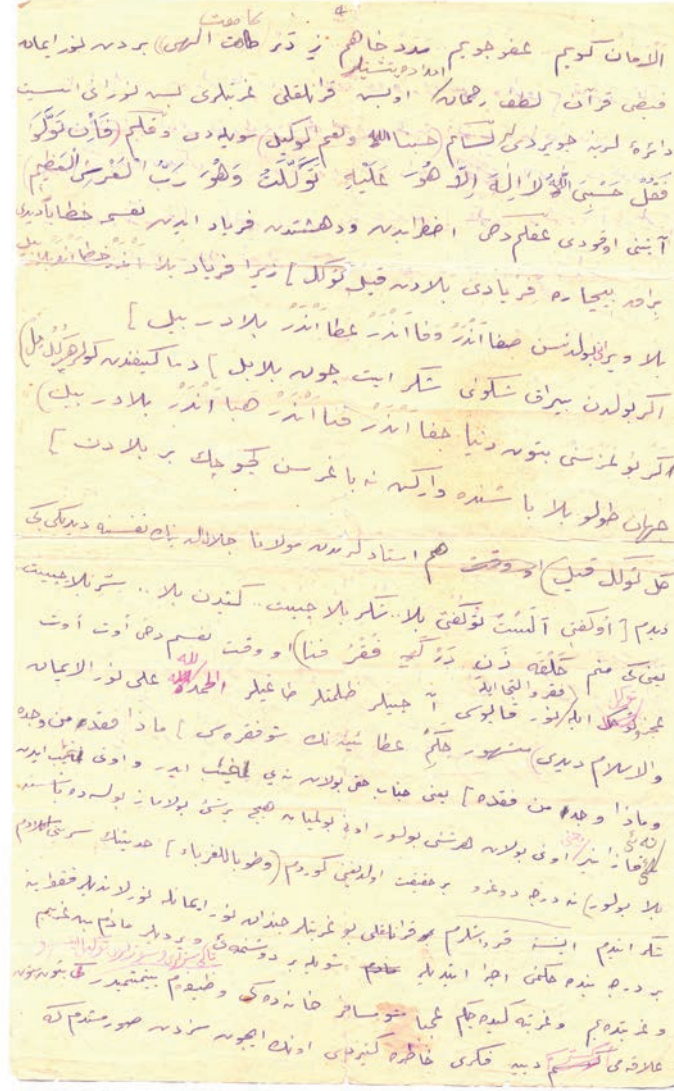 الامان كويم عفو جويم مدد خاهم ز درگاهت الهى) بردن نور ايمان
فيض قرآن لطف رحمان امداده يتشديلر او بش قرانلقلى غربتلرى بش نورانى انسيت
دائره لرينه چويرديلر لسانم (حسبنا الله ونعم الوكيل) سويلدى وقلبم (فَاِنْ تَوَلَّوْا
فَقُلْ حَسْبِىَ اللّٰهُ لَا اِلٰهَ اِلَّا هُوَ عَلَيْهِ تَوَكَّلْتُ وَهُوَ رَبُّ الْعَرْشِ الْعَظِيمِ)
آيتنى اوقودى عقلم دخى اضطرابدن ودهشتدن فرياد ايدن نفسمه خطاباً ديدى
براق بيچاره فريادى بلادن قيل توكل ] زيرا فرياد بلا اندر خطا اندر بلادر بيل
بلا ويرنى بولدنسه صفا اَنْدَرْ وفا اَنْدَرْ عطا اَنْدَرْ بلادر بيل ]
اگر بولدن بيراق شكوائى شكر ايت چون بلابل ] دما كيفندن كولر هپ گل مل)
اگر بولمزسنى بتون دنيا جفا اَنْدَرْ فنا اَنْدَرْ هبا اَنْدَرْ بلادر بيل)
جهان طولو بلا باشنده واركن نه باغررسن كوچك بر بلادن ]
گل توكل قيل) هم استادلرمدن مولانا جلال الدينك نفسنه ديديكى كبى
ديدم [ اُو گُفْتِ اَلَسْتُ تُو گُفْتِى بَلٰا.. شكر بلا چيست.. كشيدن بلا.. سرّ بلا چيست
يعنى كه منم حَلْقَه زَنِ دَرْگَهِ فَقْرُ فَنا) او وقت نفسم دخى أوت أوت
عجز وتوكل ايله فقر والتجا ايله نور قاپوسى آچيلير ظلمتلر طاغيلير الحمد لله على نور الايمان
والاسلام ديدى) مشهور حِكَمِ عطائيه نك شو فقره سى ] ماذا فقد من وجده
وماذا وجد من فقده ] يعنى جناب حقى بولان نه يى غائب ايدر واونى غائب ايدن
نه يى قازانير يعنى اونى بولان هرشئى بولور اونى بولميان هيچ برشئ بولاماز بولسه ده باشنه
بلا بولور) نه درجه دوغرو بر حقيقت اولديغنى كوردم (وطوبا للغرباء) حديثنك سرينى آكلادم
شكر ايتدم ايشته قرداشلرم بو قرانلقلى بو غربتلر چندان نور ايمانله نورلانديلر فقط ينه
بر درجه بنده حكمنى اجرا ايتديلر شويله بر دوشونجه يى ويرديلر مادام بن غريبم
وغربتده يم وغربته كيده جكم عجبا شو مسافرخانه ده كى وظيفه م بيتمشميدر كه
علاقه مى كسه يم دييه فكرى خاطره كتيردى اونك ايچون سزدن صورمشدم كه